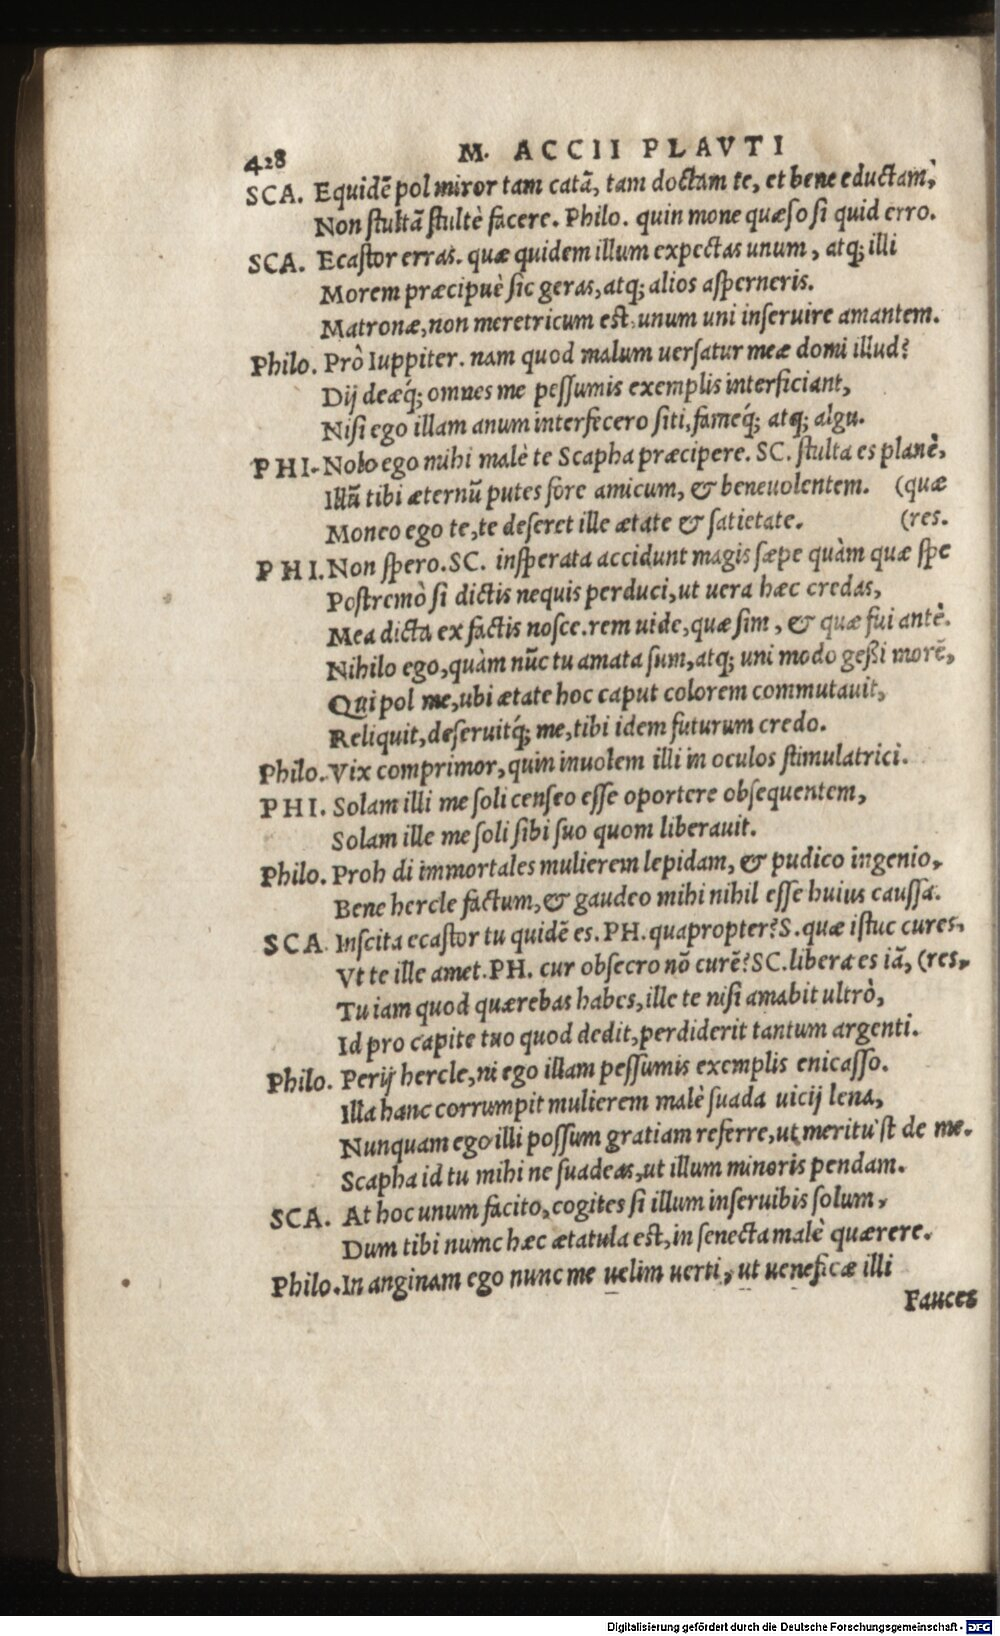 428 M. ACCII PLAVTI
SCA. Equidē pol miror tam catã, tam doctam te, et bene eductam,
Non stultã stultè facere. Philo. quin mone quæso si quid erro.
SCA. Ecastor erras. quæ quidem illum expectas unum, atq; illi
Morem præcipuè sic geras, atq; alios asperneris.
Matronæ, non meretricum est unum uni inseruire amantem.
Philo. Prò Iuppiter. nam quod malum uersatur meæ domi illud?
Dij deæq́; omnes me pessumis exemplis interficiant,
Nisi ego illam anum interfecero siti, fameq́; atq; algu.
PHI. Nolo ego mihi malè te Scapha præcipere. SC. stulta es planè,
Illũ tibi æternũ putes fore amicum, & beneuolentem. (quæ
Moneo ego te, te deseret ille ætate & satietate. (res.
PHI. Non spero. SC. insperata accidunt magis sæpe quàm quæ spe
Postremò si dictis nequis perduci, ut uera hæc credas,
Mea dicta ex factis nosce. rem uide, quæ sim, & quæ fui antè.
Nihilo ego, quàm nũc tu amata sum, atq; uni modo gessi morē,
Qui pol me, ubi ætate hoc caput colorem commutauit,
Reliquit, deseruitq́; me, tibi idem futurum credo.
Philo. Vix comprimor, quin inuolem illi in oculos stimulatrici.
PHI. Solam illi me soli censeo esse oportere obsequentem,
Solam ille me soli sibi suo quom liberauit.
Philo. Proh di immortales mulierem lepidam, & pudico ingenio,
Bene hercle factum, & gaudeo mihi nihil esse huius caussa.
SCA. Inscita ecastor tu quidē es. PH. quapropter? S. quæ istuc cures,
Vt te ille amet. PH. cur obsecro nõ curē? SC. libera es iã, (res,
Tu iam quod quærebas habes, ille te nisi amabit ultrò,
Id pro capite tuo quod dedit, perdiderit tantum argenti.
Philo. Perij hercle, ni ego illam pessumis exemplis enicasso.
Illa hanc corrumpit mulierem malè suada uicij lena,
Nunquam ego illi possum gratiam referre, ut meritu'st de me.
Scapha id tu mihi ne suadeas, ut illum minoris pendam.
SCA. At hoc unum facito, cogites si illum inseruibis solum,
Dum tibi nunc hæc ætatula est, in senecta malè quærere.
Philo. In anginam ego nunc me uelim uerti, ut ueneficæ illi
Fauces
Digitalisierung gefördert durch die Deutsche Forschungsgemeinschaft - DFG